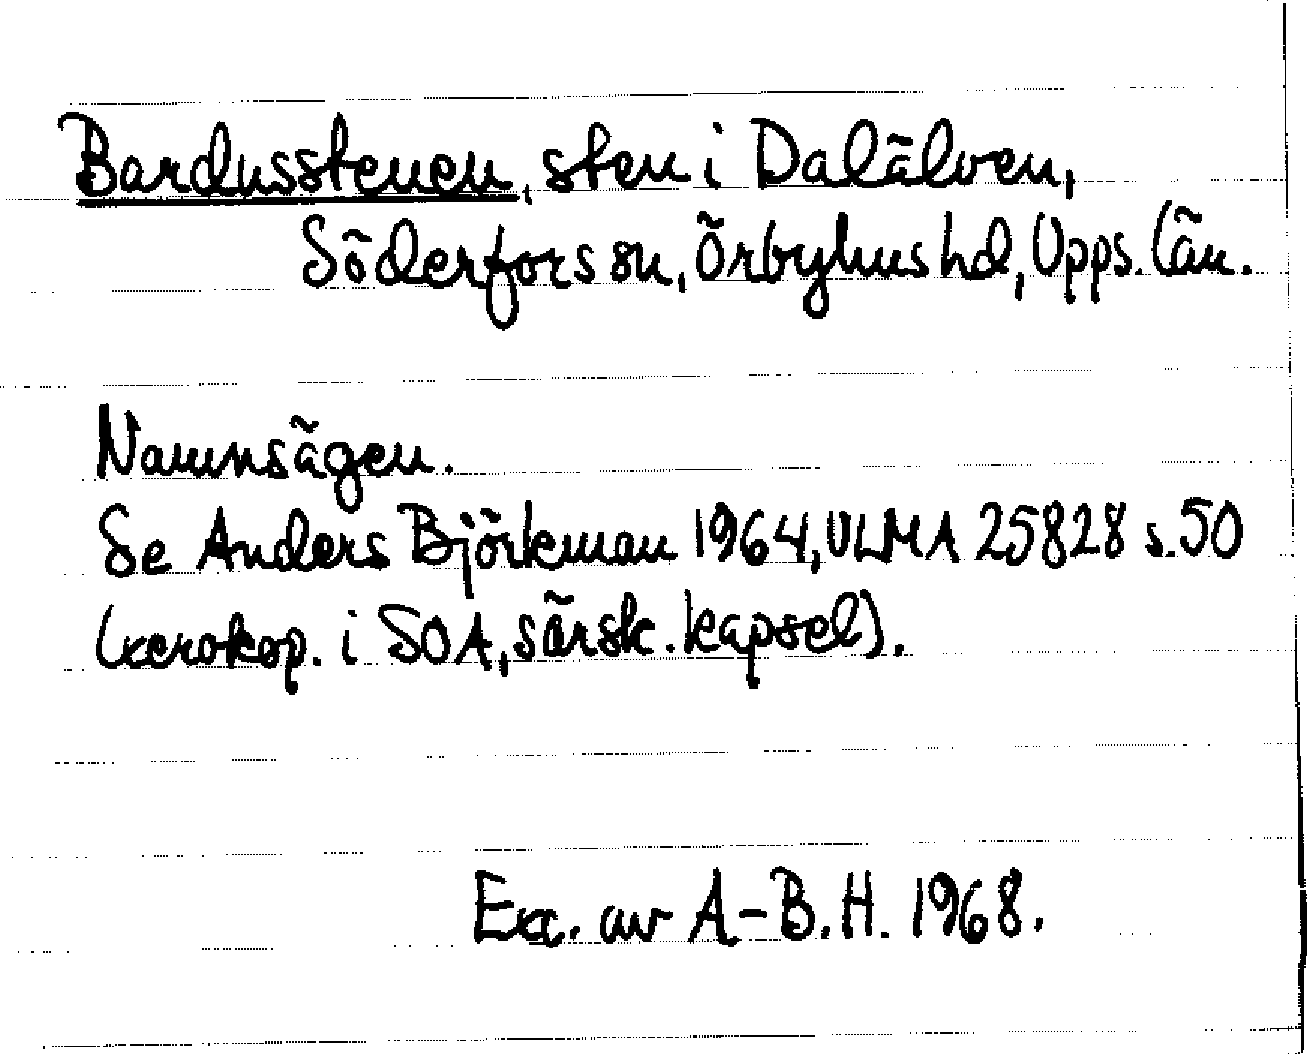 Bardusstenen, sten i Dalälven,
Söderfors sn, Örbyhus hd, Upps. län.
Namnsägen.
Se Anders Björkman 1964, ULMA 25828 s. 50
(xerokop. i SOA, särsk. kapsel).
Exc. av A-B.H. 1968.